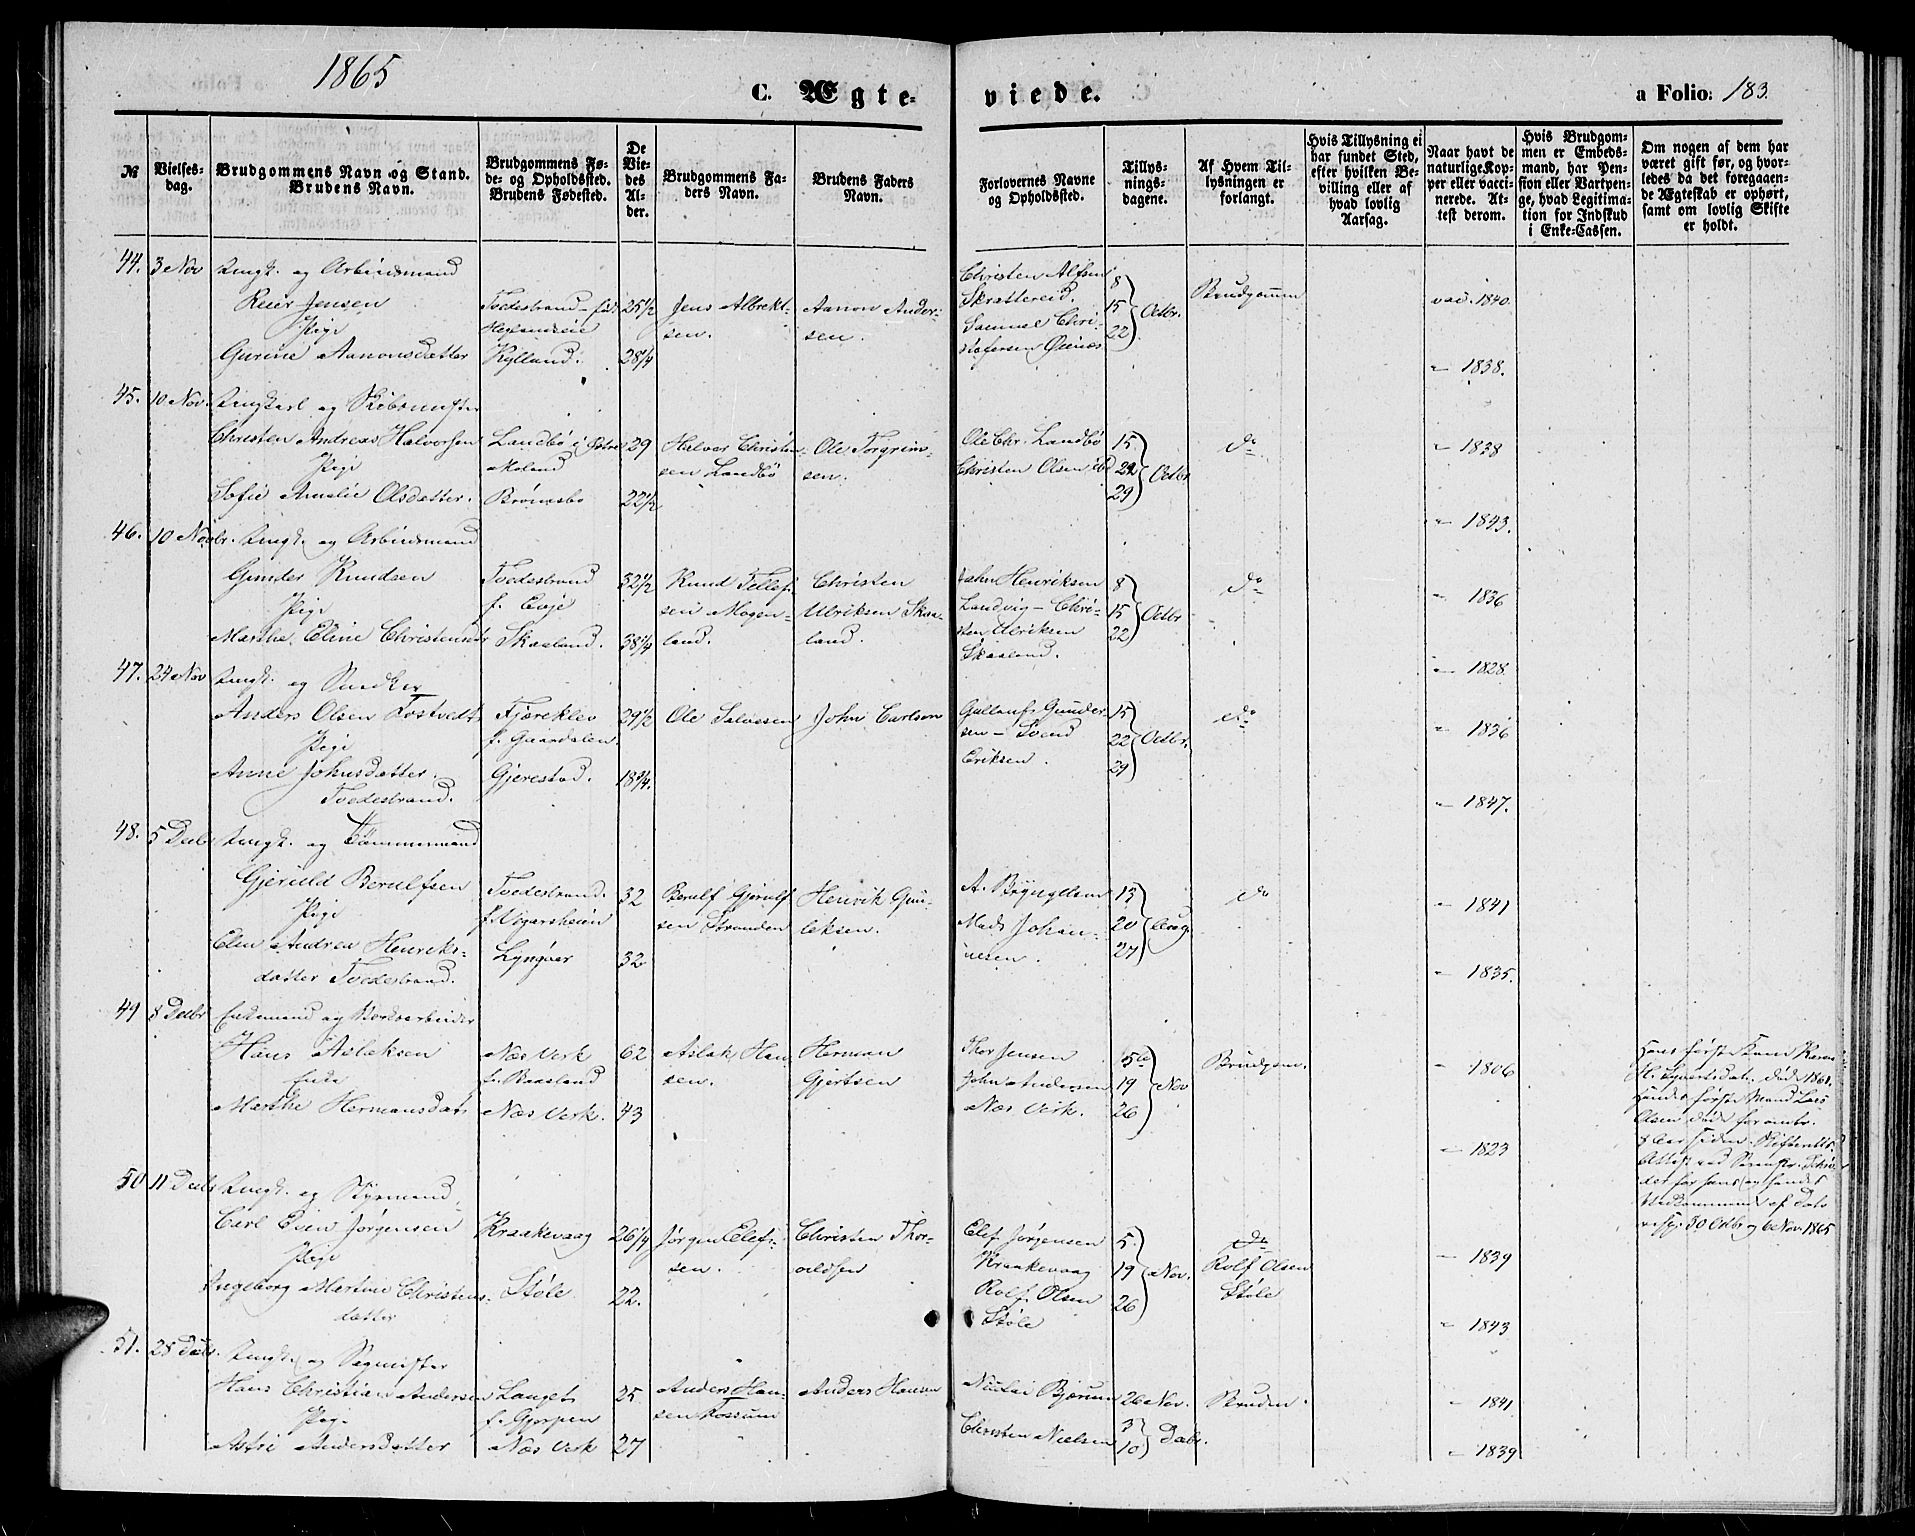 1865
C. Ægte-
viede.
a Folio: 183.
№
Vielses-
dag.
Brudgommens Navn og Stand.
Brudens Navn.
Brudgommens Fø-
de- og Opholdssted.
Brudens Fødested.
De
Vie-
des
Al-
der.
Brudgommens Fa-
ders Navn.
Brudens Faders
Navn.
Forlovernes Navne
og Opholdssted.
Tillys-
nings-
dagene.
Af Hvem Til-
lysningen er
forlangt.
Hvis Tillysning ei
har fundet Sted,
efter hvilken Be-
villing eller af
hvad lovlig
Aarsag.
Naar havt de
naturlige Kop-
per eller vacci-
nerede. At-
test derom.
Hvis Brudgom-
men er Embeds-
mand, har Pen-
sion eller Vartpen-
ge, hvad Legitima-
tion for Indskud
i Enke-Cassen.
Om nogen af dem har
været gift før, og hvor-
ledes da det foregaaen-
de Ægteskab er ophørt,
samt om lovlig Skifte
er holdt.
44. 3 Nov Ungk. og Arbeidsmand
Reier Jensen
Pige
Gurine Aanonsdatter
Tvedestrand - født
Kylland.
25 1/2
28 1/4
Jens Albrekt-
sen.
Aanon Ander-
sen.
Christen Alfsen
Skrattereid.
Samuel Chri-
stofersen
8
15
22
Octbr.
Brudgommen
vac. 1840.
" 1838.
45. 10 Nov. Ungkarl og Skibsmester
Christen Andreas Halvorsen
Pige
Sofie Amalie Olsdatter.
Landbø i Østre
Moland
29
22 1/2
Halvor Christen-
sen Landbø
Ole Torgrim-
sen.
Ole Chr. Landbø
Christen Olsen ibd
15
22
29
Octbr
do
" 1838
" 1843.
46. 10 Novbr. Ungk. og Arbeidsmand
Gunder Knudsen
Pige
Marthe Eline Christensdtr
Tvedestrand
f. Evje
Skaaland.
32 1/2
38 1/4
Knud Tellef-
sen Mogen-
land.
Christen
Ulriksen Skaa-
land.
John Henriksen
Landvig - Chri-
sten Ulriksen
Skaaland.
8
15
22
Octbr
do
" 1836
" 1828.
47. 24 Nov Ungk. og Snedker
Anders Olsen Tostvedt
Pige
Anne Johnsdatter.
Tvedestrand.
Fjæreklev
f. Gaardalen.
Gjerestad.
29 1/2
18 3/4.
Ole Salvesen
John Carlsen
Gullauf Gunder-
sen - Svend
Eriksen.
15
22
29
Octbr.
do
" 1836
" 1847.
48. 5 Decbr Ungk. og Tømmermand
Gjeruld Berulfsen
Pige
Elen Andrea Henriks-
datter Tvedestrand.
Tvedestrand.
f. Vegarsheien
Lyngøer
32
32
Berulf Gjerulf-
sen Stranden
Henrik Gun-
leksen.
A. Bryngelsen
Mads Johan-
nesen.
13
20
27
Aug.
do
" 1841
" 1835.
49 8 Decbr Enkemand og Værksarbeider
Hans Aslaksen
Enke
Marthe Hermansdatr
Næs Verk
f. Baasland
Næs Verk.
62
43
Aslak Han-
sen.
Herman
Gjertsen
Thor Jensen
John Andersen
Næs Verk.
5te
19
26
Nov
Brudgom.
" 1806
" 1823
Hans første Kone Karen
død 1861.
Hendes første Mand Lars
Olsen døde for omtr.
8 Aar siden.
for hans og hendes
Vedkommende af Dato
30 Octbr og 6 Nov. 1865
50 11 Decbr Ungk. og Styrmand
Carl Elen Jørgensen
Pige
Ingeborg Martine Christens-
datter
Kraakevaag
Støle
26 1/4
22.
Jørgen Elef-
sen.
Christen Thor-
valdsen
Elef Jørgensen
Kraakevaag
Rolf Olsen
Støle
5.
19
26
Nov.
do
Rolf Olsen
Støle
" 1839
" 1843
51. 28 Decbr. Ungk. og Sagmester
Hans Christian Andersen
Pige
Astri Andersdatter
Langets
f. Gjerpen
Næs Verk
25
27
Anders Han-
sen Fossum
Anders Hansen
Nicolai Bjørum
Christen Nielsen
26 Nov.
3
10
Decbr.
Bruden.
" 1841.
" 1839